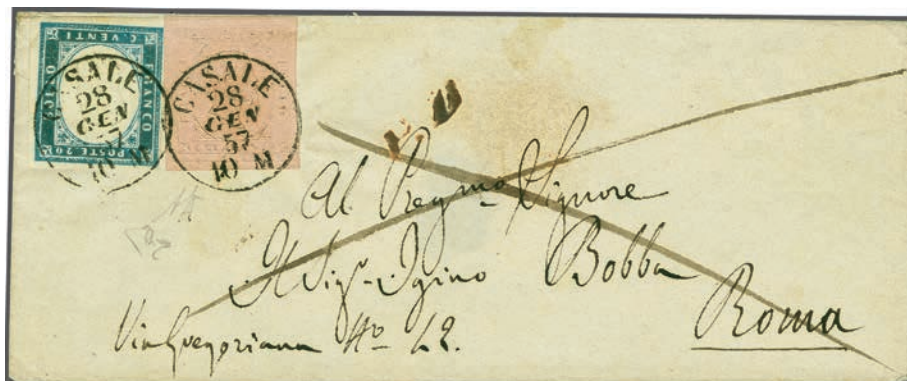 C. VENTI
FRANCO
BOLLO
POSTE 20
CASALE
28
GEN
57
10 M
CASALE
28
GEN
57
10 M
Al Pregmo Signore
Il Sigr. Igino Bobba
Roma
Via Gregoriana No 42.